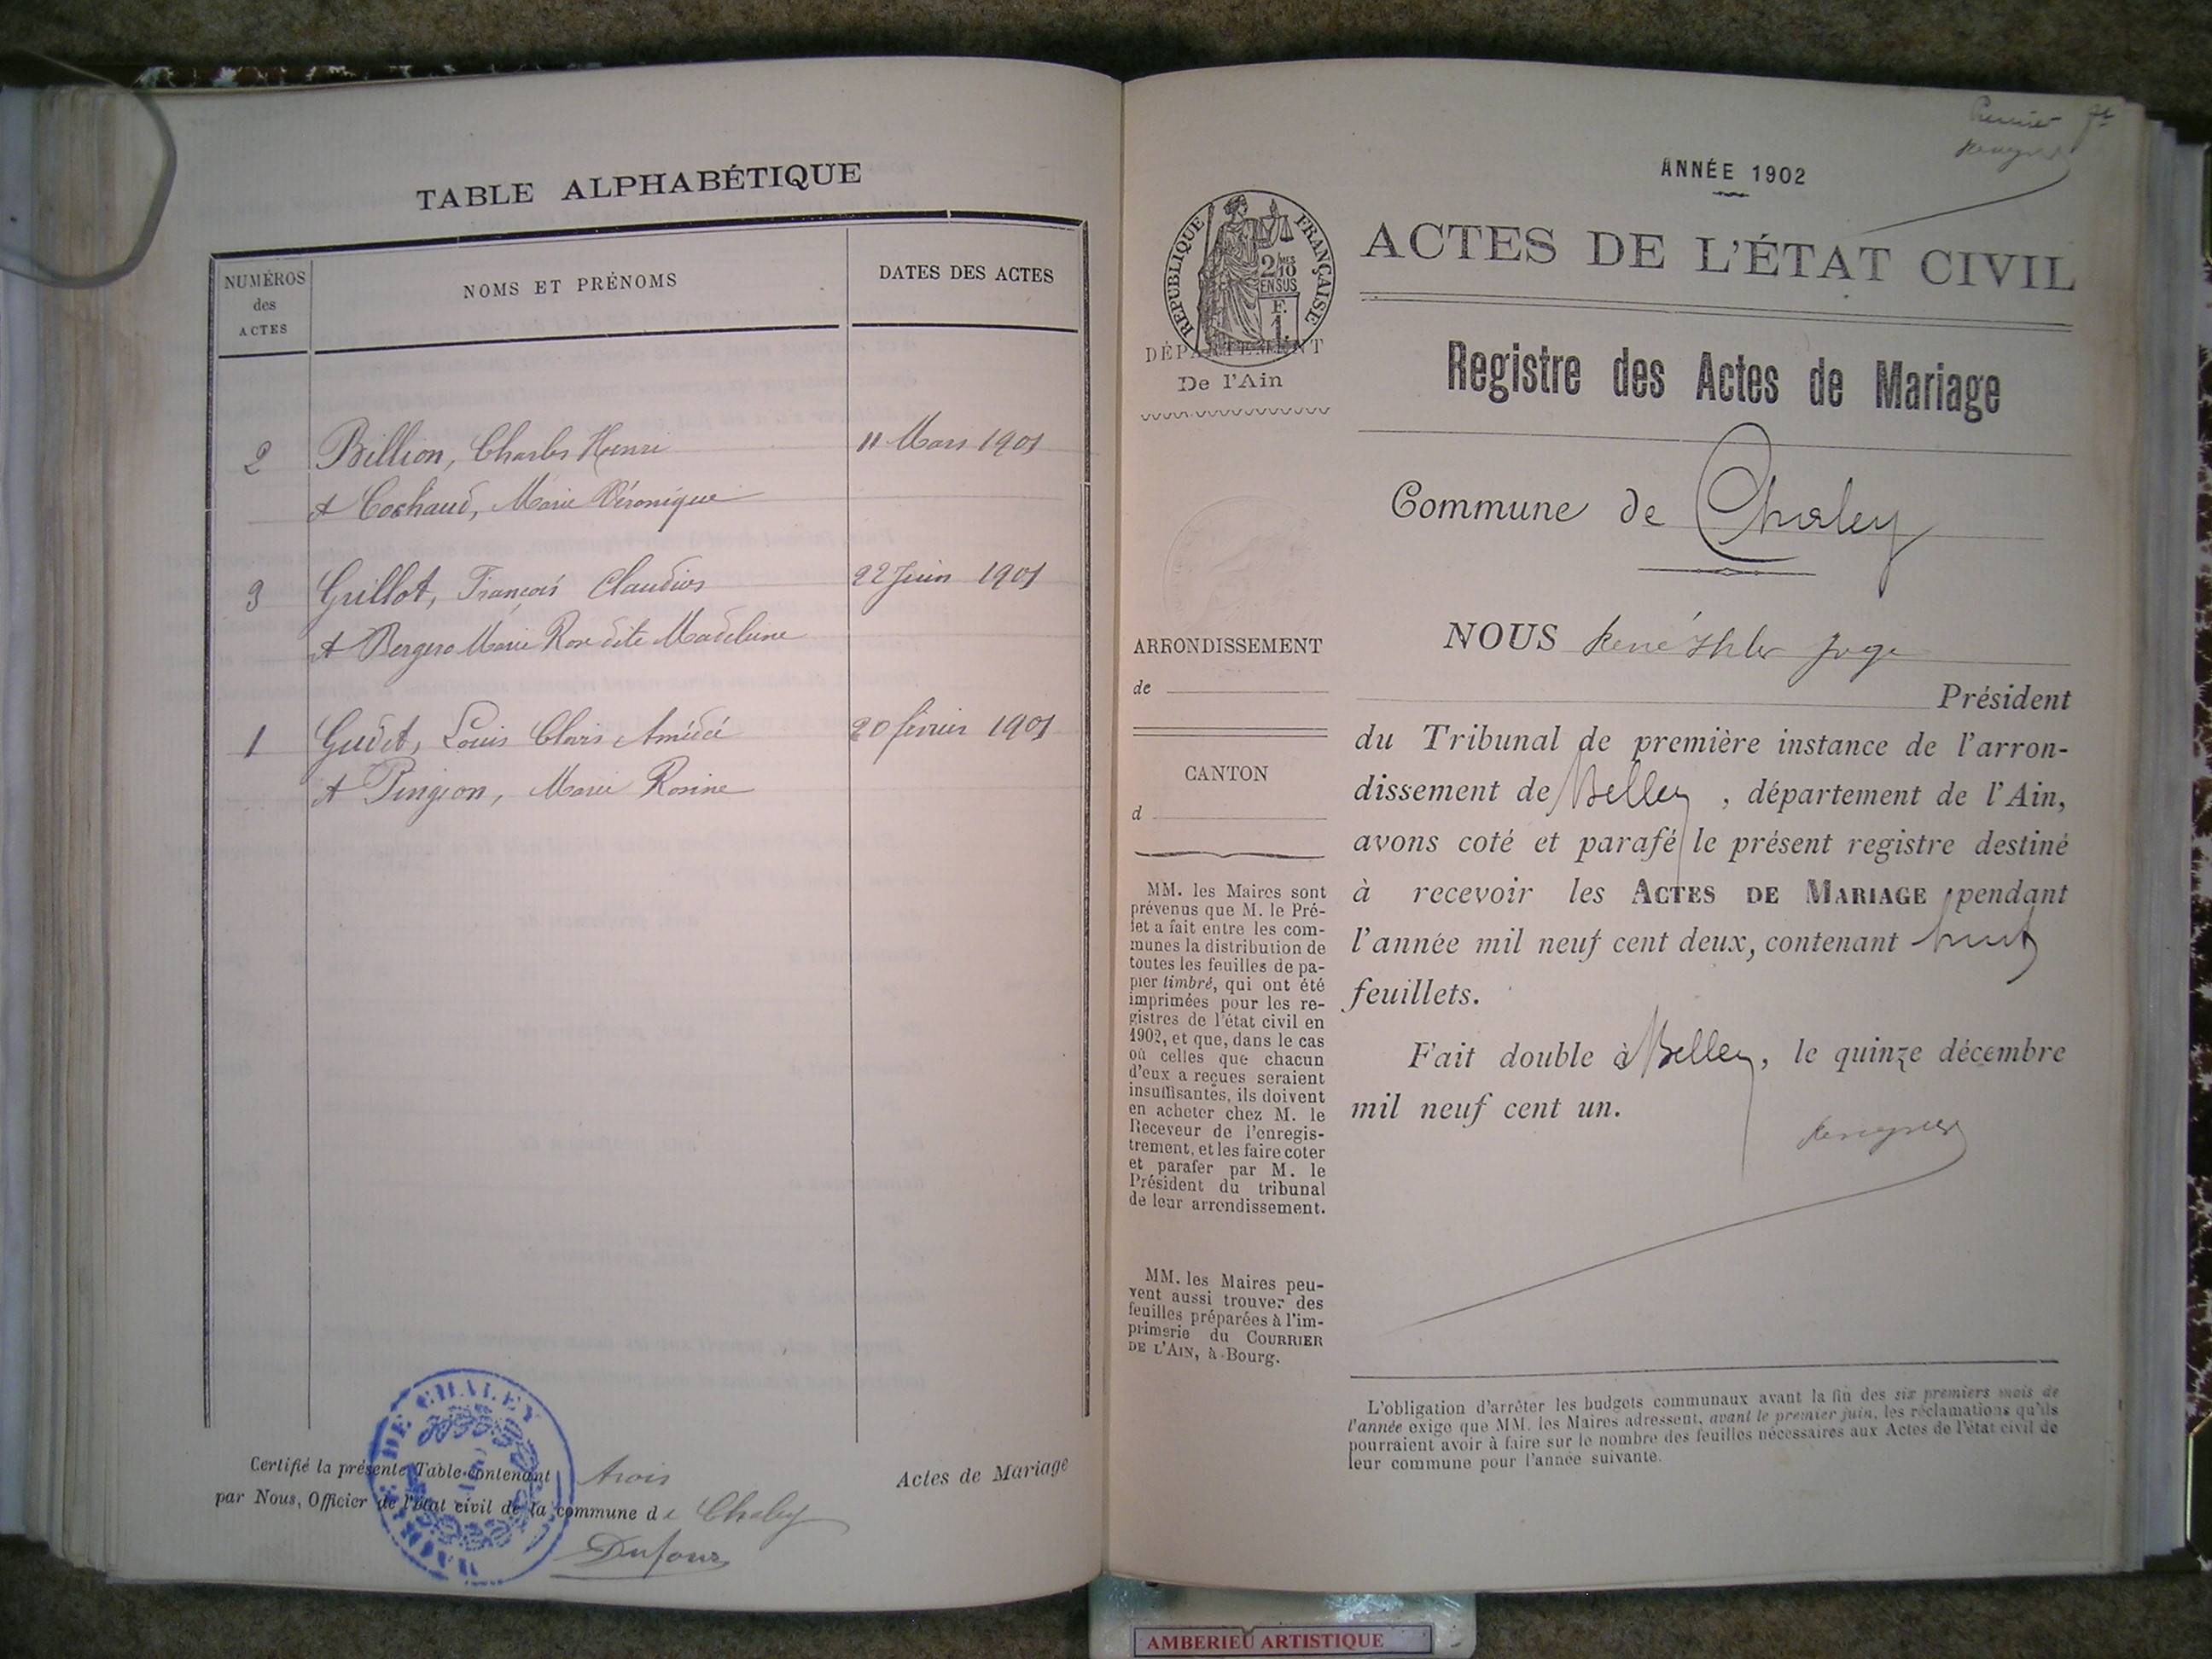 TABLE ALPHABÉTIQUE
NUMÉROS
des
ACTES
NOMS ET PRÉNOMS
DATES DES ACTES
2 Billion, Charles Henri 11 Mars 1901
et Cochaud, Marie Véronique
3 Grillot, François Claudius 22 Juin 1901
et Bergero Marie Rose dite Madeleine
1 Gudet, Louis Clovis Amédée 20 février 1901
et Pingeon, Marie Rosine
MAIRIE DE CHALEY
Certifié la présente Table contenant trois Actes de Mariage
par Nous, Officier de l'état civil de la commune de Chaley
Dufour
Premier
ANNÉE 1902
RÉPUBLIQUE FRANÇAISE
2/10 MES
EN SUS
F.
1.
DÉPARTEMENT
De l'Ain
ACTES DE L'ÉTAT CIVIL
Registre des Actes de Mariage
Commune de Chaley
ARRONDISSEMENT
de
CANTON
d
MM. les Maires sont
prévenus que M. le Pré-
fet a fait entre les com-
munes la distribution de
toutes les feuilles de pa-
pier timbré, qui ont été
imprimées pour les re-
gistres de l'état civil en
1902, et que, dans le cas
où celles que chacun
d'eux a reçues seraient
insuffisantes, ils doivent
en acheter chez M. le
Receveur de l'enregis-
trement, et les faire coter
et parafer par M. le
Président du tribunal
de leur arrondissement.
MM. les Maires peu-
vent aussi trouver des
feuilles préparées à l'im-
primerie du COURRIER
DE L'AIN, à Bourg.
NOUS René Juge
Président
du Tribunal de première instance de l'arron-
dissement de Belley, département de l'Ain,
avons coté et parafé le présent registre destiné
à recevoir les ACTES DE MARIAGE pendant
l'année mil neuf cent deux, contenant huit
feuillets.
Fait double à Belley, le quinze décembre
mil neuf cent un.
L'obligation d'arrêter les budgets communaux avant la fin des six premiers mois de
l'année exige que MM. les Maires adressent, avant le premier juin, les réclamations qu'ils
pourraient avoir à faire sur le nombre des feuilles nécessaires aux Actes de l'état civil de
leur commune pour l'année suivante.
AMBERIEU ARTISTIQUE